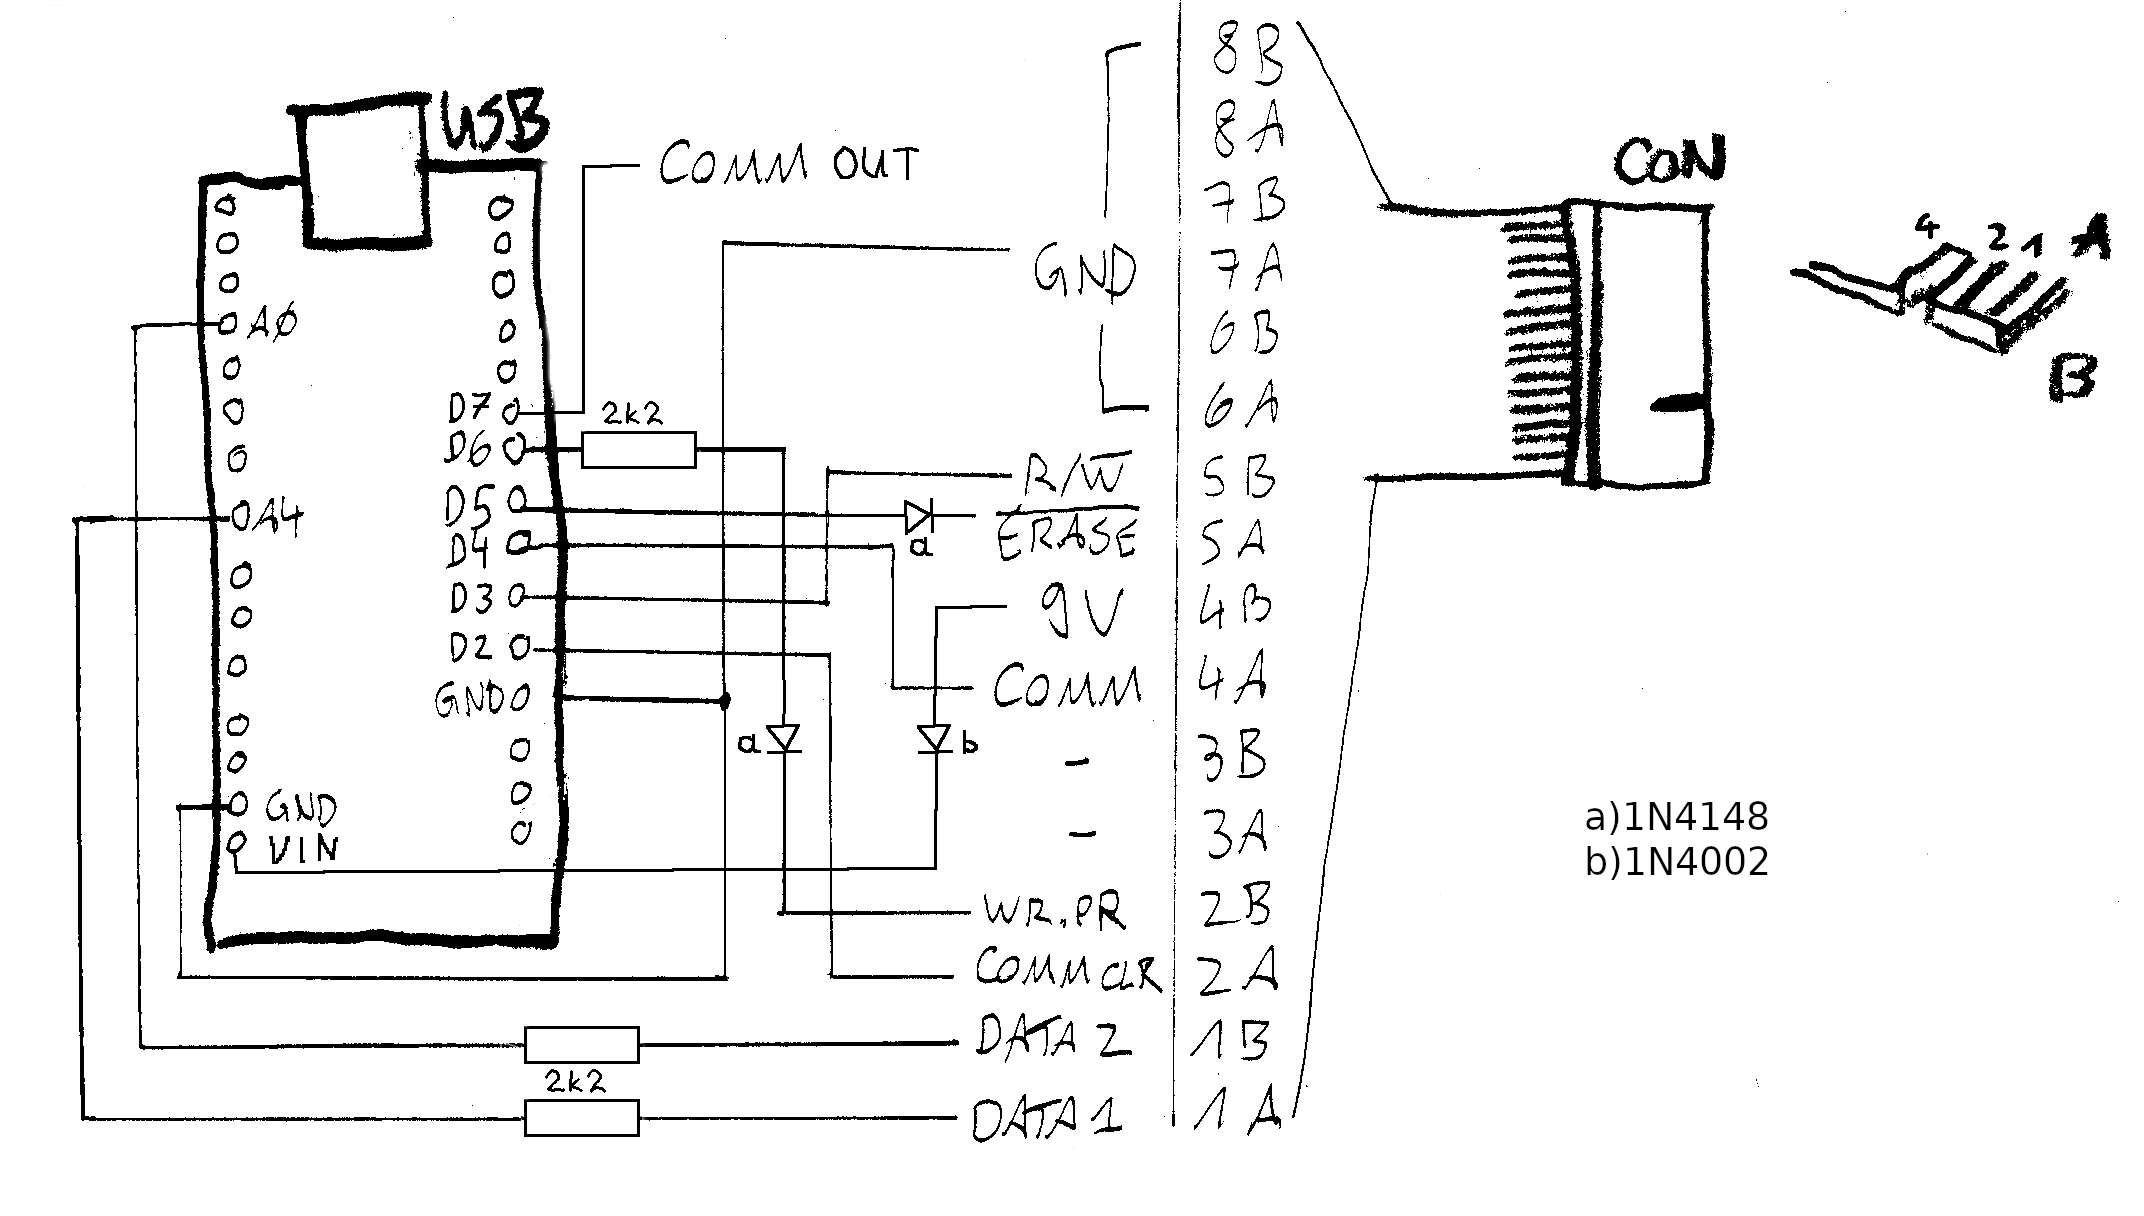 USB
COMM OUT
A0
A4
GND
VIN
D7
D6
D5
D4
D3
D2
GND
2k2
a
a
b
2k2
GND
R/W̅
E̅R̅A̅S̅E̅
9V
COMM
-
-
WR.PR
COMM CLR
DATA 2
DATA 1
8B
8A
7B
7A
6B
6A
5B
5A
4B
4A
3B
3A
2B
2A
1B
1A
CON
4 2 1 A
B
a)1N4148
b)1N4002